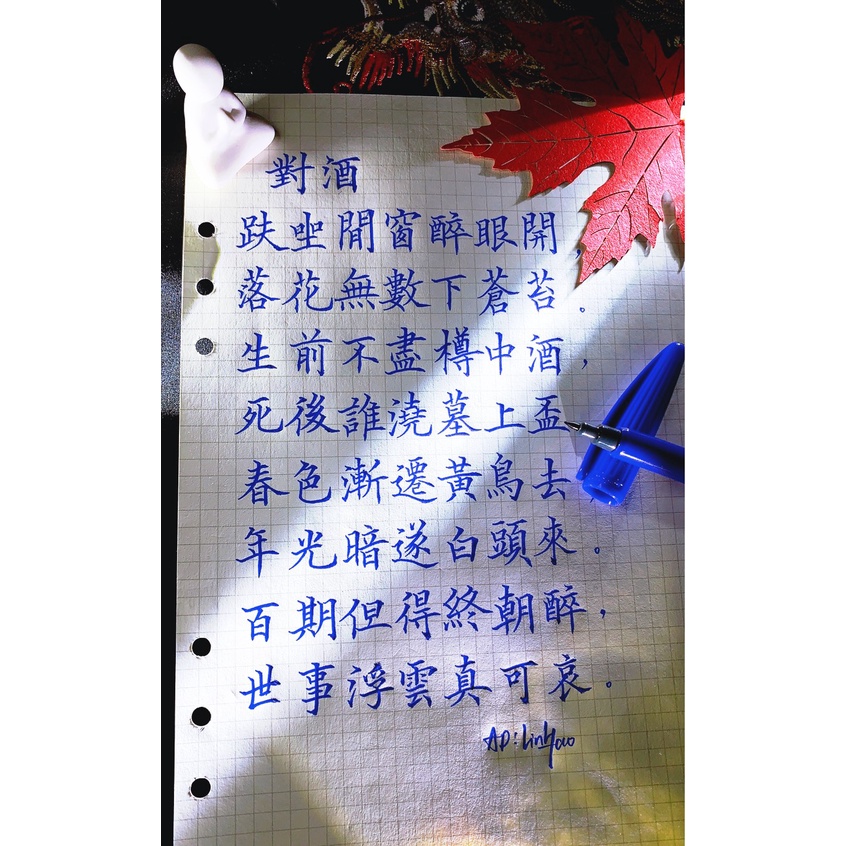 對酒
趺坐閒窗醉眼開，
落花無數下蒼苔。
生前不盡樽中酒，
死後誰澆墓上盃
春色漸遷黃鳥去
年光暗遂白頭來。
百期但得終朝醉，
世事浮雲真可哀。